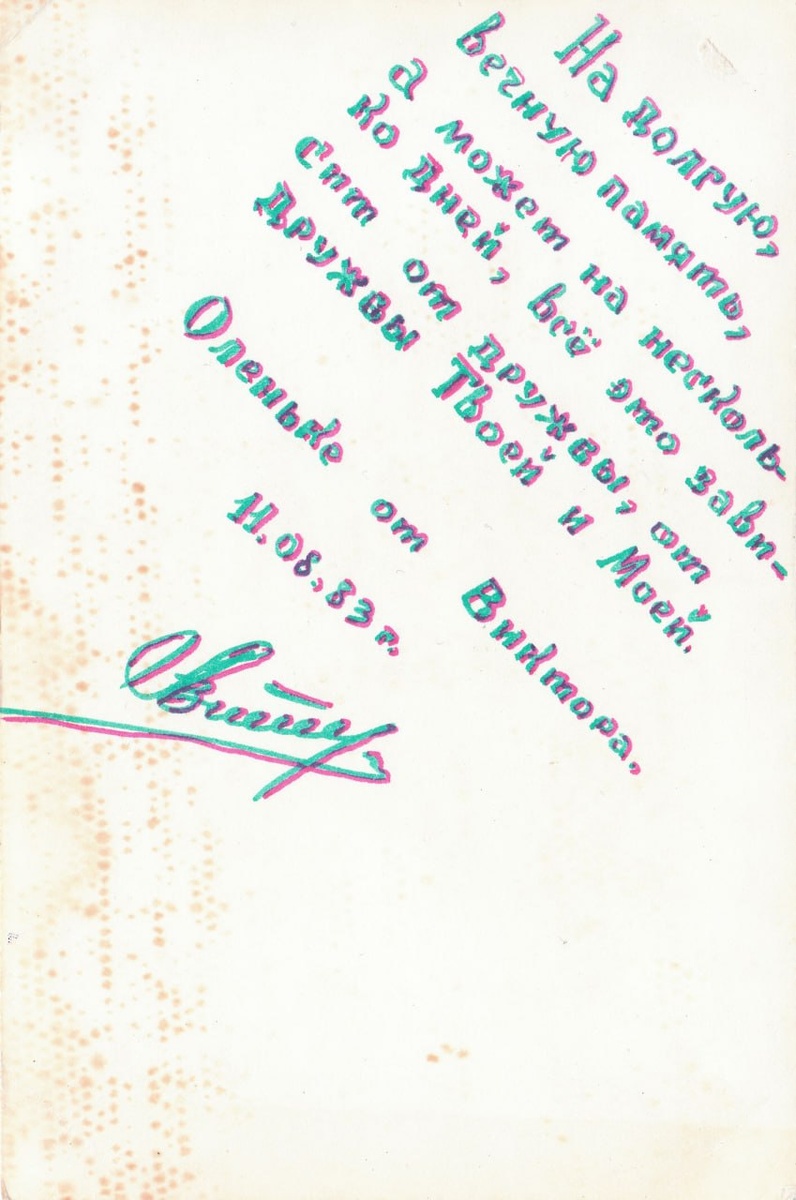 На долгую,
вечную память,
а может на несколь-
ко дней, всё это зави-
сит от дружбы, от
дружбы Твоей и Моей.
Оленьке от Виктора.
11.08.83 г.